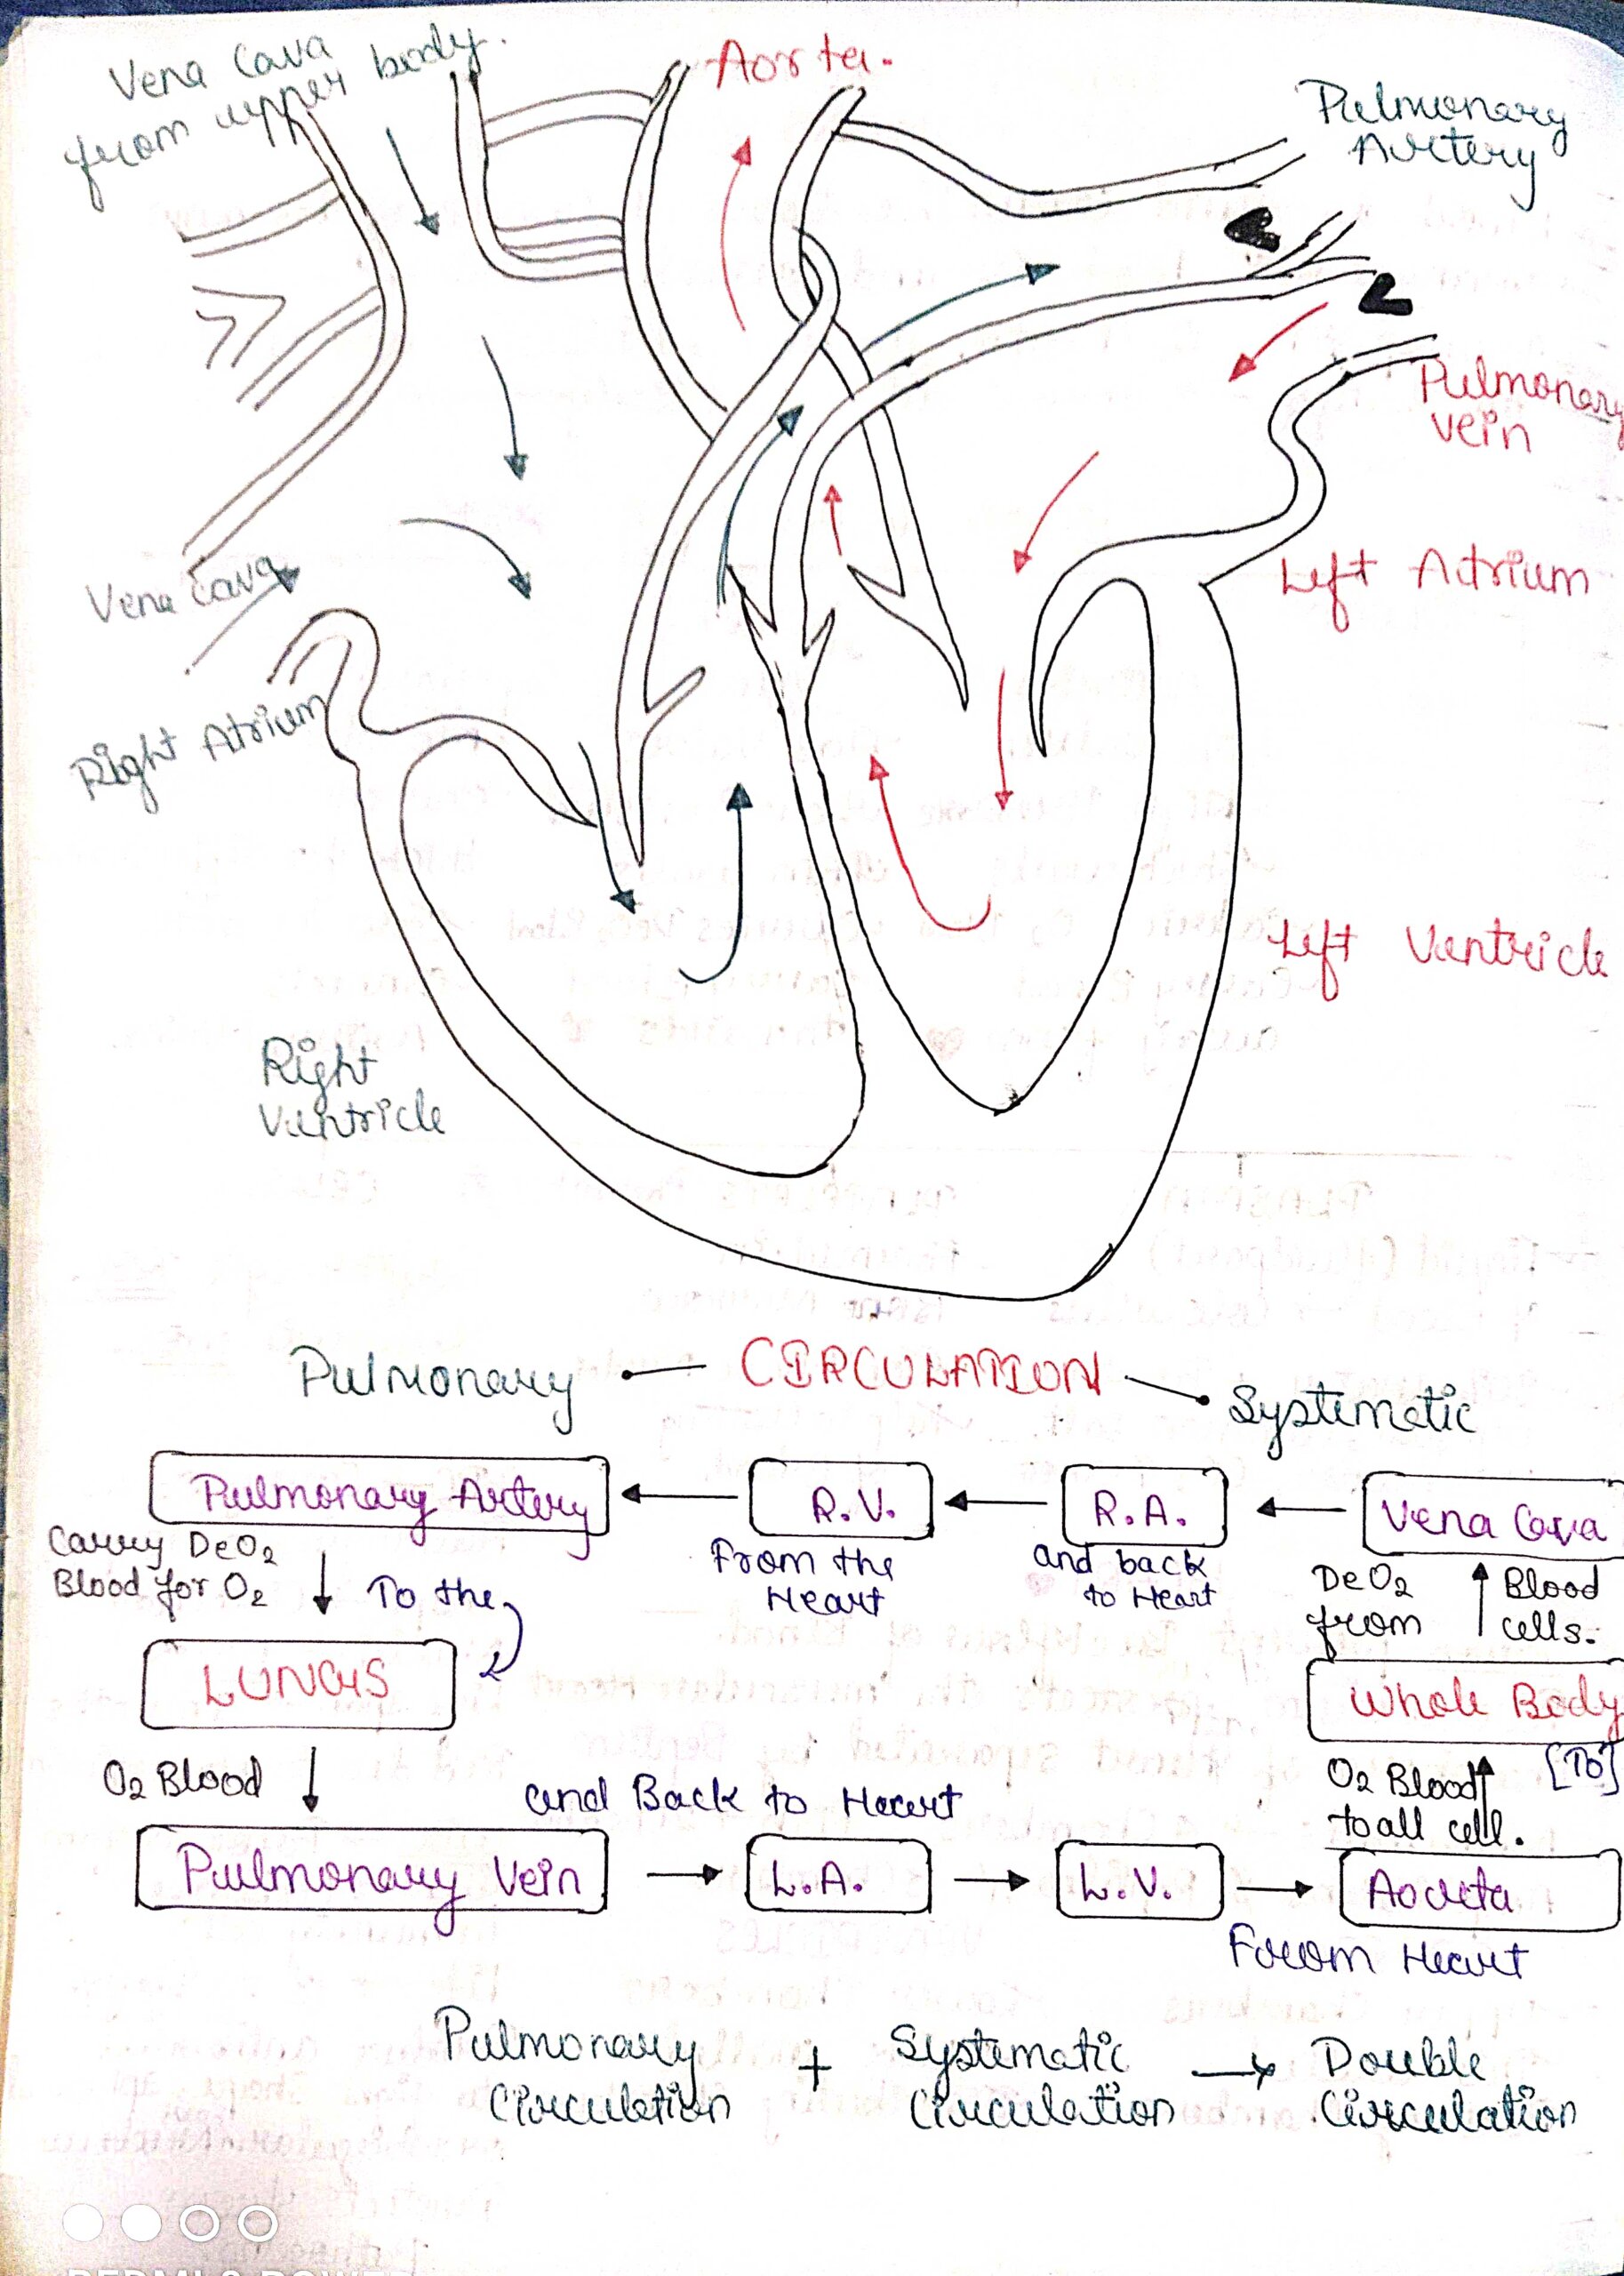 Vena Cava
from upper body.
Aorta.
Pulmonary
Artery
Pulmonary
vein
Vena cava
Left Atrium
Right Atrium
Left Ventricle
Right
Ventricle
Pulmonary
CIRCULATION
Systematic
Pulmonary Artery
R.V.
R.A.
Vena Cava
Carry DeO2
Blood for O2
To the
From the
Heart
and back
to Heart
DeO2
from
Blood
cells.
LUNGS
Whole Body
[To]
O2 Blood
and Back to Heart
O2 Blood
to all cell.
Pulmonary Vein
L.A.
L.V.
Aorta
From Heart
Pulmonary
Circulation
+
Systematic
Circulation
Double
Circulation